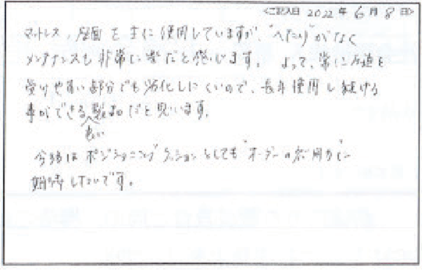 ご記入日 2022年6月8日
マットレス、座面を主に使用していますが、"へたり"がなく
メンテナンスも非常に楽だと感じます。よって、常に圧迫を
受けやすい部分でも劣化しにくいので、長年使用し続ける
事ができる良い製品だと思います。
今後はポジショニングクッションとしても"オーダーの応用力"に
期待したいです。